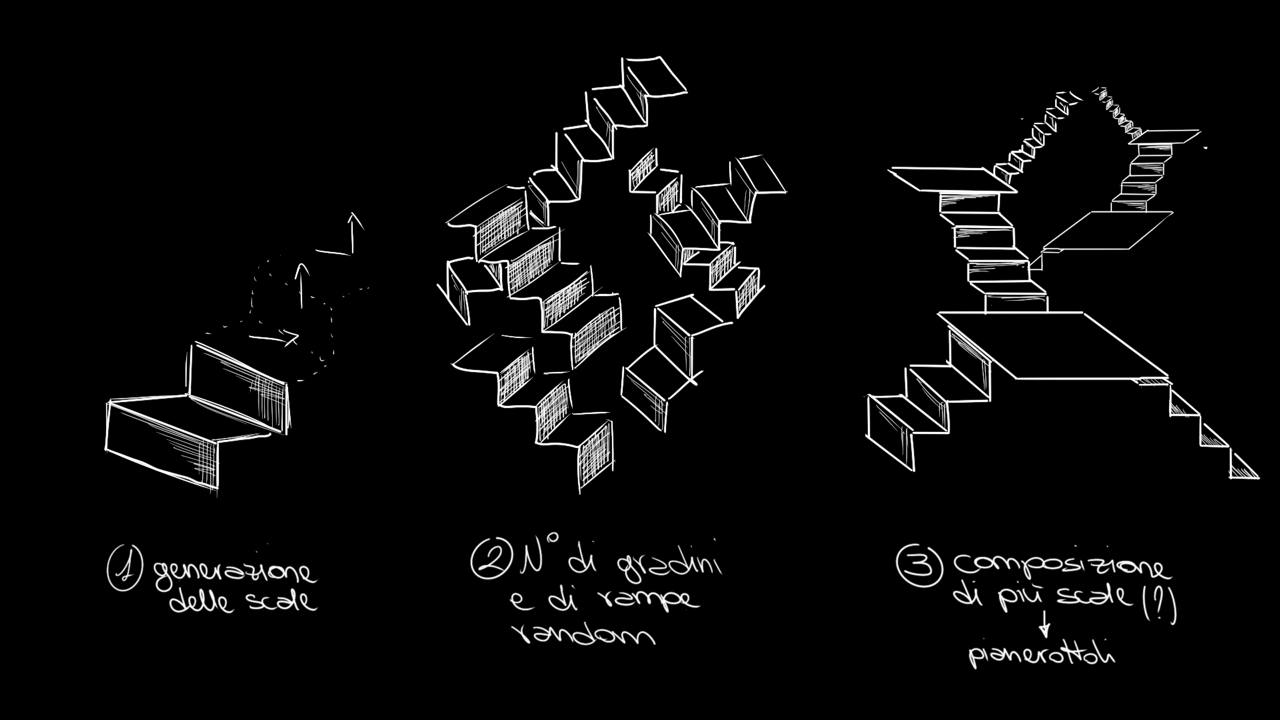 1 generazione
delle scale
2 N° di gradini
e di rampe
random
3 composizione
di più scale (?)
↓
pianerottoli